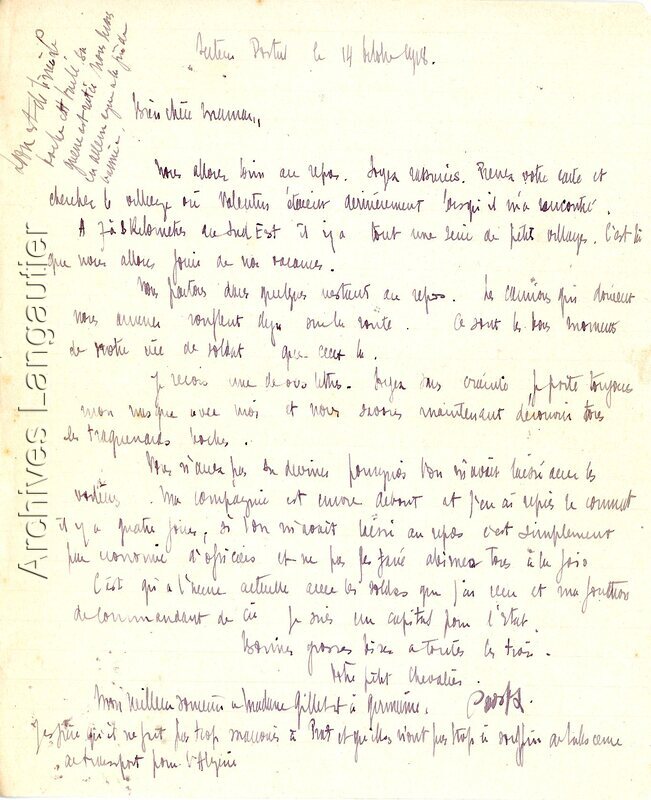 Secteur Postal le 14 Octobre 1918.
Bien chère maman,
Nous allons bien au repos. Soyez rassurées. Prenez votre carte et
cherchez le village où Valentin étaient dernièrement lorsqu'il m'a rencontré.
A 7 à 8 kilomètres au Sud Est il y a tout une série de petit villages. C'est là
que nous allons jouir de nos vacances.
Nous partons dans quelques instant au repos. Les camions qui doivent
nous amener ronflent déjà sur la route. Ce sont les bons moments
de notre vie de soldat que ceux là.
Je reçois une de vos lettres. Soyez sans crainte je porte toujours
mon masque avec moi et nous savons maintenant découvrir tous
les traquenards boches.
Vous n'avez pas su deviner pourquoi l'on m'avait laissé avec les
Ma compagnie est encore debout et j'en ai repris le commat
il y a quatre jours, si l'on m'avait laissé au repos c'est simplement
par économie d'officiers et ne pas abimer tous à la fois
C'est qu'a l'heure actuelle avec les soldes que j'ai et ma fonction
de commandant de cie je suis un capital pour l'Etat.
Bonnes grosses bises a toutes les trois.
Votre petit Chevalier.
Mon meilleur souvenir a Madame Gillet et à Germaine.
J'espère qu'il ne fait pas trop mauvais à et qu'elles n'ont pas trop à souffrir
de transport pour l'Algérie
boche est
guerre est
Archives Langautier